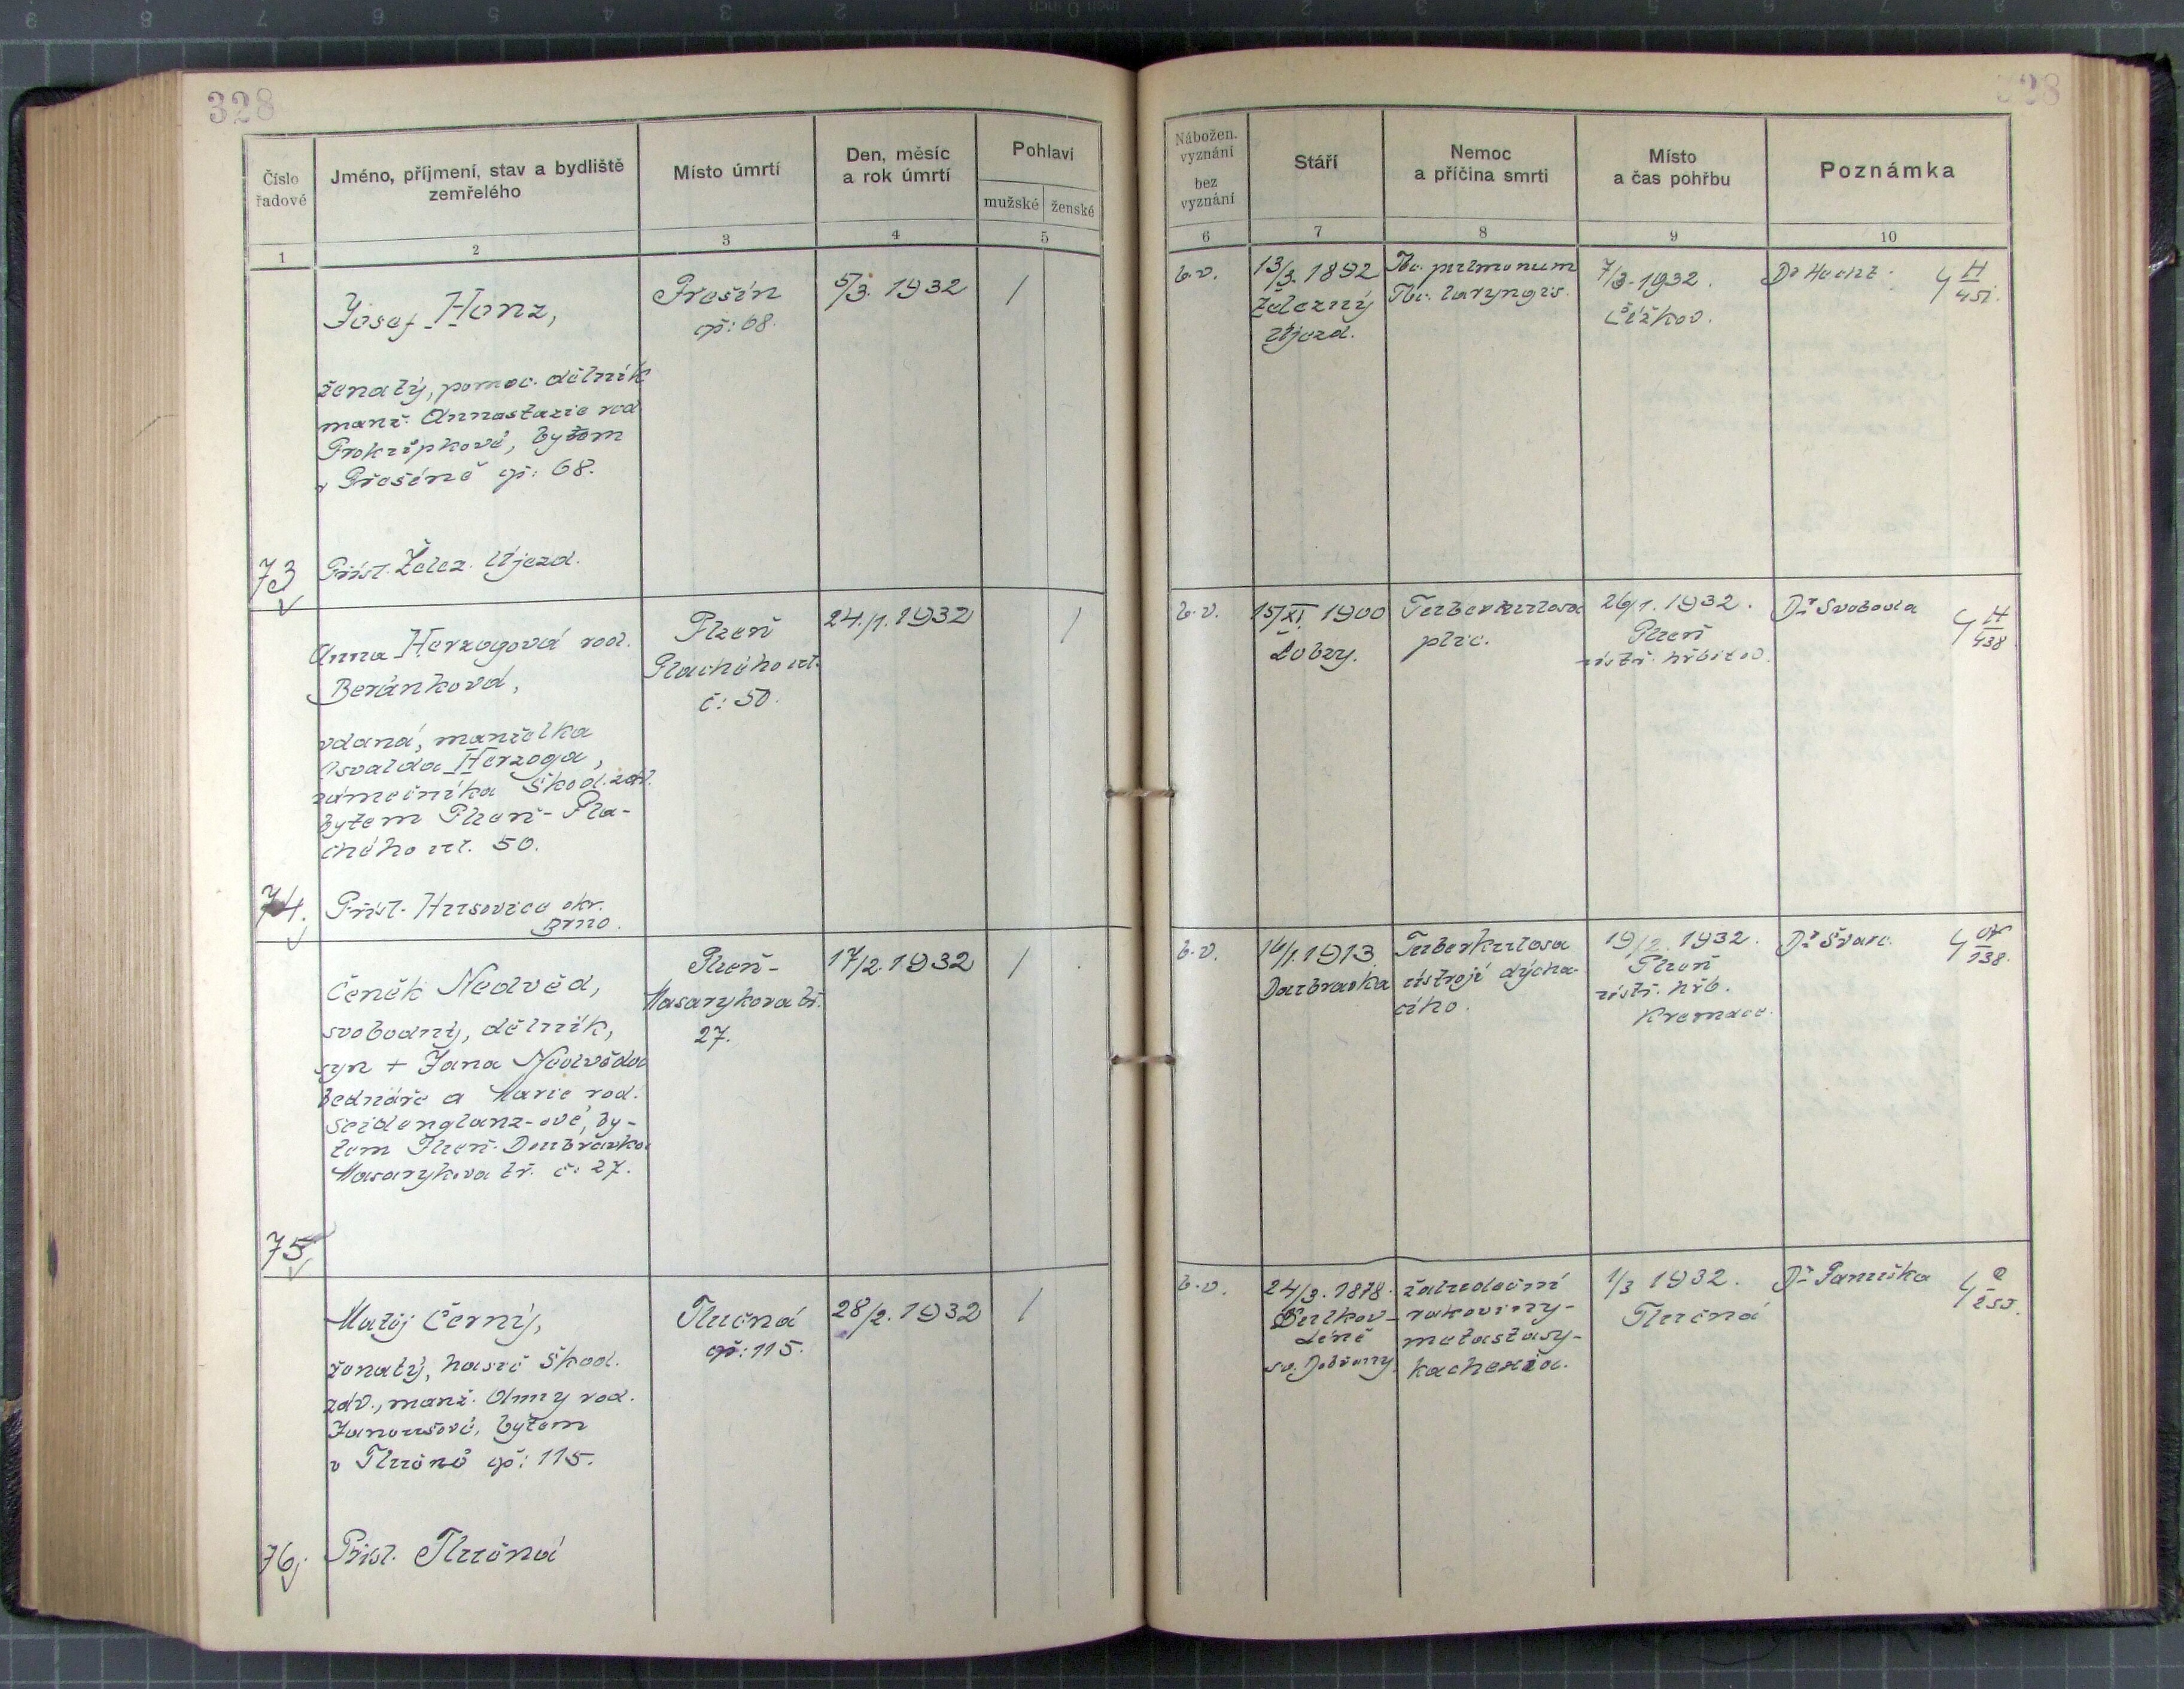 328
328
Číslo řadové
Jméno, příjmení, stav a bydliště
zemřelého
Místo úmrtí
Den, měsíc
a rok úmrtí
Pohlaví
mužské ženské
Nábožen.
vyznání
bez
vyznání
Stáří
Nemoc
a příčina smrti
Místo
a čas pohřbu
Poznámka
1 2 3 4 5 6 7 8 9 10
Josef Honz,
ženatý, pomoc. dělník
manž. Annastazie rod.
Prokůpkové, bytem
v Přešíně čp: 68.
Přísl. Želez. Újezd.
73
Prešín
čp: 68.
5/3. 1932
/
b.v.
13/3. 1892
Železný
Újezd.
Tbc. pulmonum
Tbc. laryngis.
7/3. 1932.
Čížkov.
4 H/451.
Anna Herzogová rod.
Beránková,
vdaná, manželka
Osvalda Herzoga,
zámečníka Škod. záv.
bytem Plzeň - Pla-
chého ul. 50.
Přísl. Husovice okr.
Brno.
74.
Plzeň
Plachého ul.
č: 50.
24./1. 1932
/
b.v.
15/XI. 1900
Lobzy.
Tuberkulosa
plic.
26/1. 1932.
Plzeň
ústř. hřbitov.
Dr Svoboda
4 H/438
Čeněk Nedvěd,
svobodný, dělník,
syn + Jana Nedvěda
bednáře a Marie rod.
Seidenglanz-ové, by-
tem Plzeň-Doubravka
Masarykova tř. č: 27.
75
Plzeň-
Masarykova tř.
27.
17/2. 1932
/
b.v.
16/1. 1913
Doubravka
Tuberkulosa
ústrojí dýcha-
cího.
19/2. 1932.
Plzeň
ústř. hřb.
Kremace.
Dr Švarc.
Matěj Černý,
ženatý, hasič Škod.
záv., manž. Anny rod.
Janoušové, bytem
v Tlučné čp: 115.
Přísl. Tlučná
76.
Tlučná
čp: 115.
28/2. 1932
/
b.v.
24/3. 1878.
sv. Dobřany.
žaludeční
rakoviny-
metastasy-
kachexia.
1/3 1932.
Tlučná
Dr Panuška